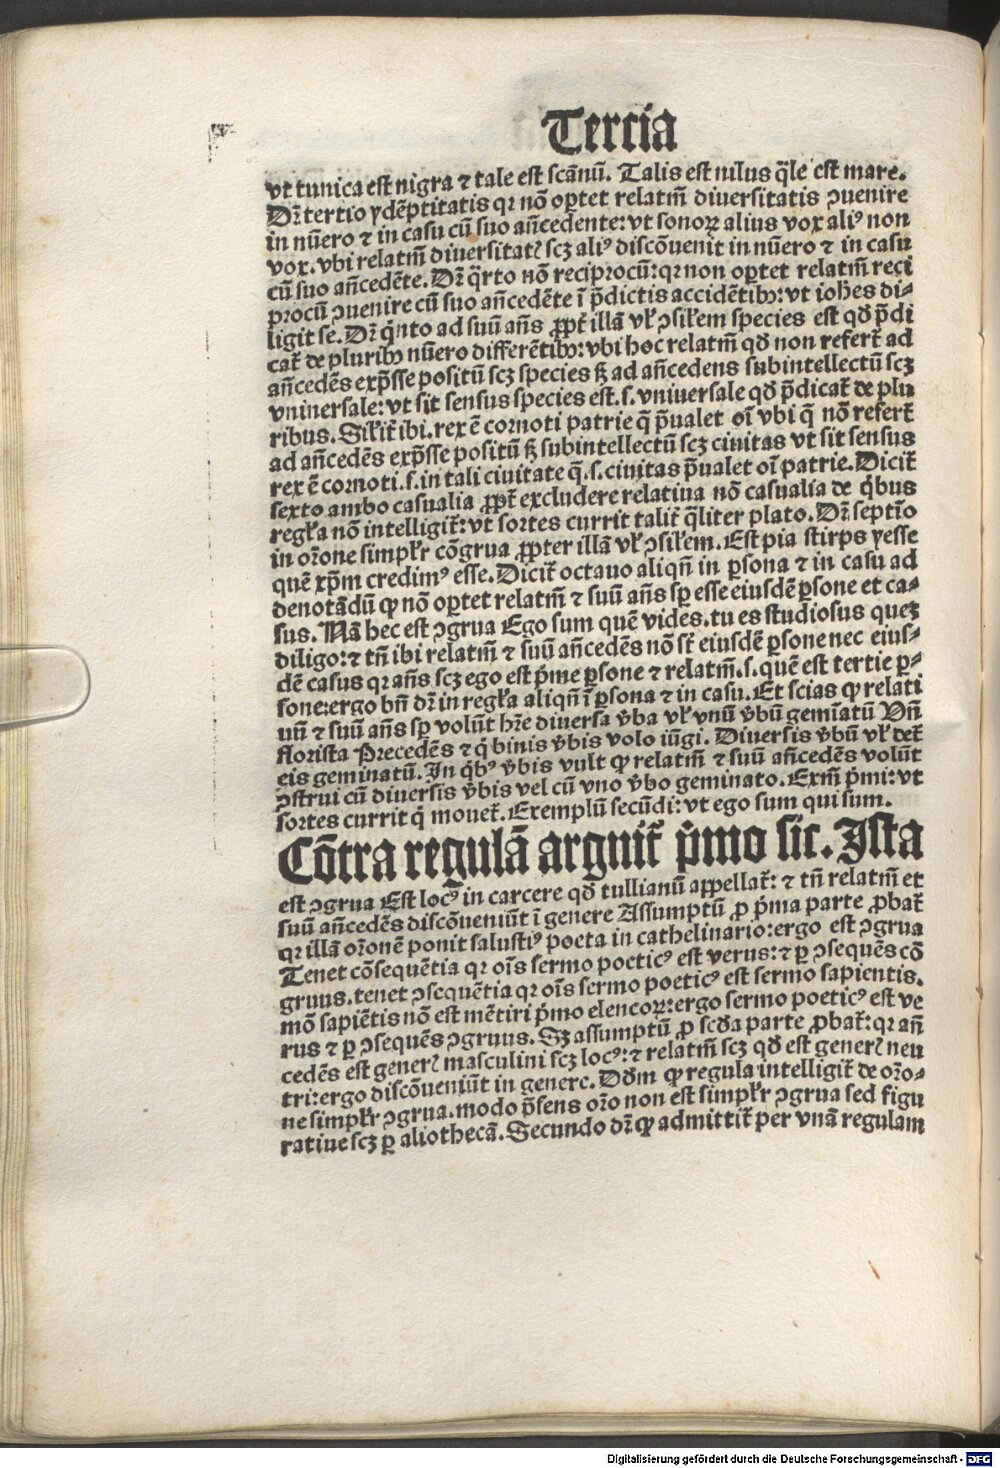 Tercia
vt tunica est nigra ⁊ tale est scãnũ. Talis est nilus q̃le est mare.
Dr̃ tertio ydẽptitatis qr nõ oꝑtet relatm̃ diuersitatis ꝯuenire
in nũero ⁊ in casu cũ suo añcedente: vt sonoꝝ alius vox aliꝰ non
vox. vbi relatm̃ diuersitatꝭ scꝫ aliꝰ discõuenit in nũero ⁊ in casu
cũ suo añcedẽte. Dr̃ q̃rto nõ reciprocũ: qr non oꝑtet relatm̃ reci
procũ ꝯuenire cũ suo añcedẽte ĩ p̃dictis accidẽtibꝫ: vt ioh̃es di⸗
ligit se. Dr̃ q̃nto ad suũ añs ꝓpt̃ illã vl̕ ꝯsil̕em species est qđ p̃di
cat̃ de pluribꝫ nũero differẽtibꝫ: vbi hoc relatm̃ qđ non refert̃ ad
añcedẽs exp̃sse positũ scꝫ species sꝫ ad añcedens subintellectũ scꝫ
vniuersale: vt sit sensus species est .s. vniuersale qđ p̃dicat̃ de plu
ribus. Sil̕it̃ ibi. rex ẽ cornoti patrie q̃ p̃ualet oĩ vbi q̃ nõ refert̃
ad añcedẽs exp̃sse positũ sꝫ subintellectũ scꝫ ciuitas vt sit sensus
rex ẽ cornoti .s. in tali ciuitate q̃ .s. ciuitas p̃ualet oĩ patrie. Dicit̃
sexto ambo casualia ꝓpt̃ excludere relatiua nõ casualia de q̃bus
regl̕a nõ intelligit̃: vt sortes currit talit̃ q̃liter plato. Dr̃ septĩo
in or̃one simpl̕r cõgrua ꝓpter illã vl̕ ꝯsil̕em. Est pia stirps yesse
quẽ xp̃m credimꝰ esse. Dicit̃ octauo aliqñ in ꝑsona ⁊ in casu ad
denotãdũ ꝙ nõ oꝑtet relatm̃ ⁊ suũ añs sꝑ esse eiusdẽ ꝑsone et ca⸗
sus. Nã hec est ꝯgrua Ego sum quẽ vides. tu es studiosus queꝫ
diligo: ⁊ tñ ibi relatm̃ ⁊ suũ añcedẽs nõ st̃ eiusdẽ ꝑsone nec eius⸗
dẽ casus qr añs scꝫ ego est p̃me ꝑsone ⁊ relatm̃ .s. quẽ est tertie ꝑ⸗
sone: ergo bñ dr̃ in regl̕a aliqñ ĩ ꝑsona ⁊ in casu. Et scias ꝙ relati
uũ ⁊ suũ añs sꝑ volũt hr̃e diuersa v̕ba vl̕ vnũ v̕bũ gemĩatũ Vñ
florista Precedẽs ⁊ q̃ binis v̕bis volo iũgi. Diuersis v̕bũ vl̕ det̃
eis geminatũ. In q̃bꝰ v̕bis vult ꝙ relatm̃ ⁊ suũ añcedẽs volũt
ꝯstrui cũ diuersis v̕bis vel cũ vno v̕bo geminato. Exm̃ p̃mi: vt
sortes currit q̃ mouet̃. Exemplũ secũdi: vt ego sum qui sum.
Cõtra regulã arguit̃ p̃mo sic. Ista
est ꝯgrua Est locꝰ in carcere qđ tullianũ appellat̃: ⁊ tñ relatm̃ et
suũ añcedẽs discõueniũt ĩ genere Assumptũ ꝓ p̃ma parte ꝓbat̃
qr illã or̃onẽ ponit salustiꝰ poeta in cathelinario: ergo est ꝯgrua
Tenet cõsequẽtia qr oĩs sermo poeticꝰ est verus: ⁊ ꝑ ꝯsequẽs cõ
gruus. tenet ꝯsequẽtia qr oĩs sermo poeticꝰ est sermo sapientis.
mõ sapiẽtis nõ est mẽtiri p̃mo elencoꝝ: ergo sermo poeticꝰ est ve
rus ⁊ ꝑ ꝯsequẽs ꝯgruus. Sꝫ assumptũ ꝓ scđa parte ꝓbat̃: qr añ
cedẽs est generꝭ masculini scꝫ locꝰ: ⁊ relatm̃ scꝫ qđ est generꝭ neu
tri: ergo discõueniũt in genere. Dđm ꝙ regula intelligit̃ de or̃o⸗
ne simpl̕r ꝯgrua. modo p̃sens or̃o non est simpl̕r ꝯgrua sed figu
ratiue scꝫ ꝑ aliothecã. Secundo dr̃ ꝙ admittit̃ per vnã regulam
Digitalisierung gefördert durch die Deutsche Forschungsgemeinschaft - DFG